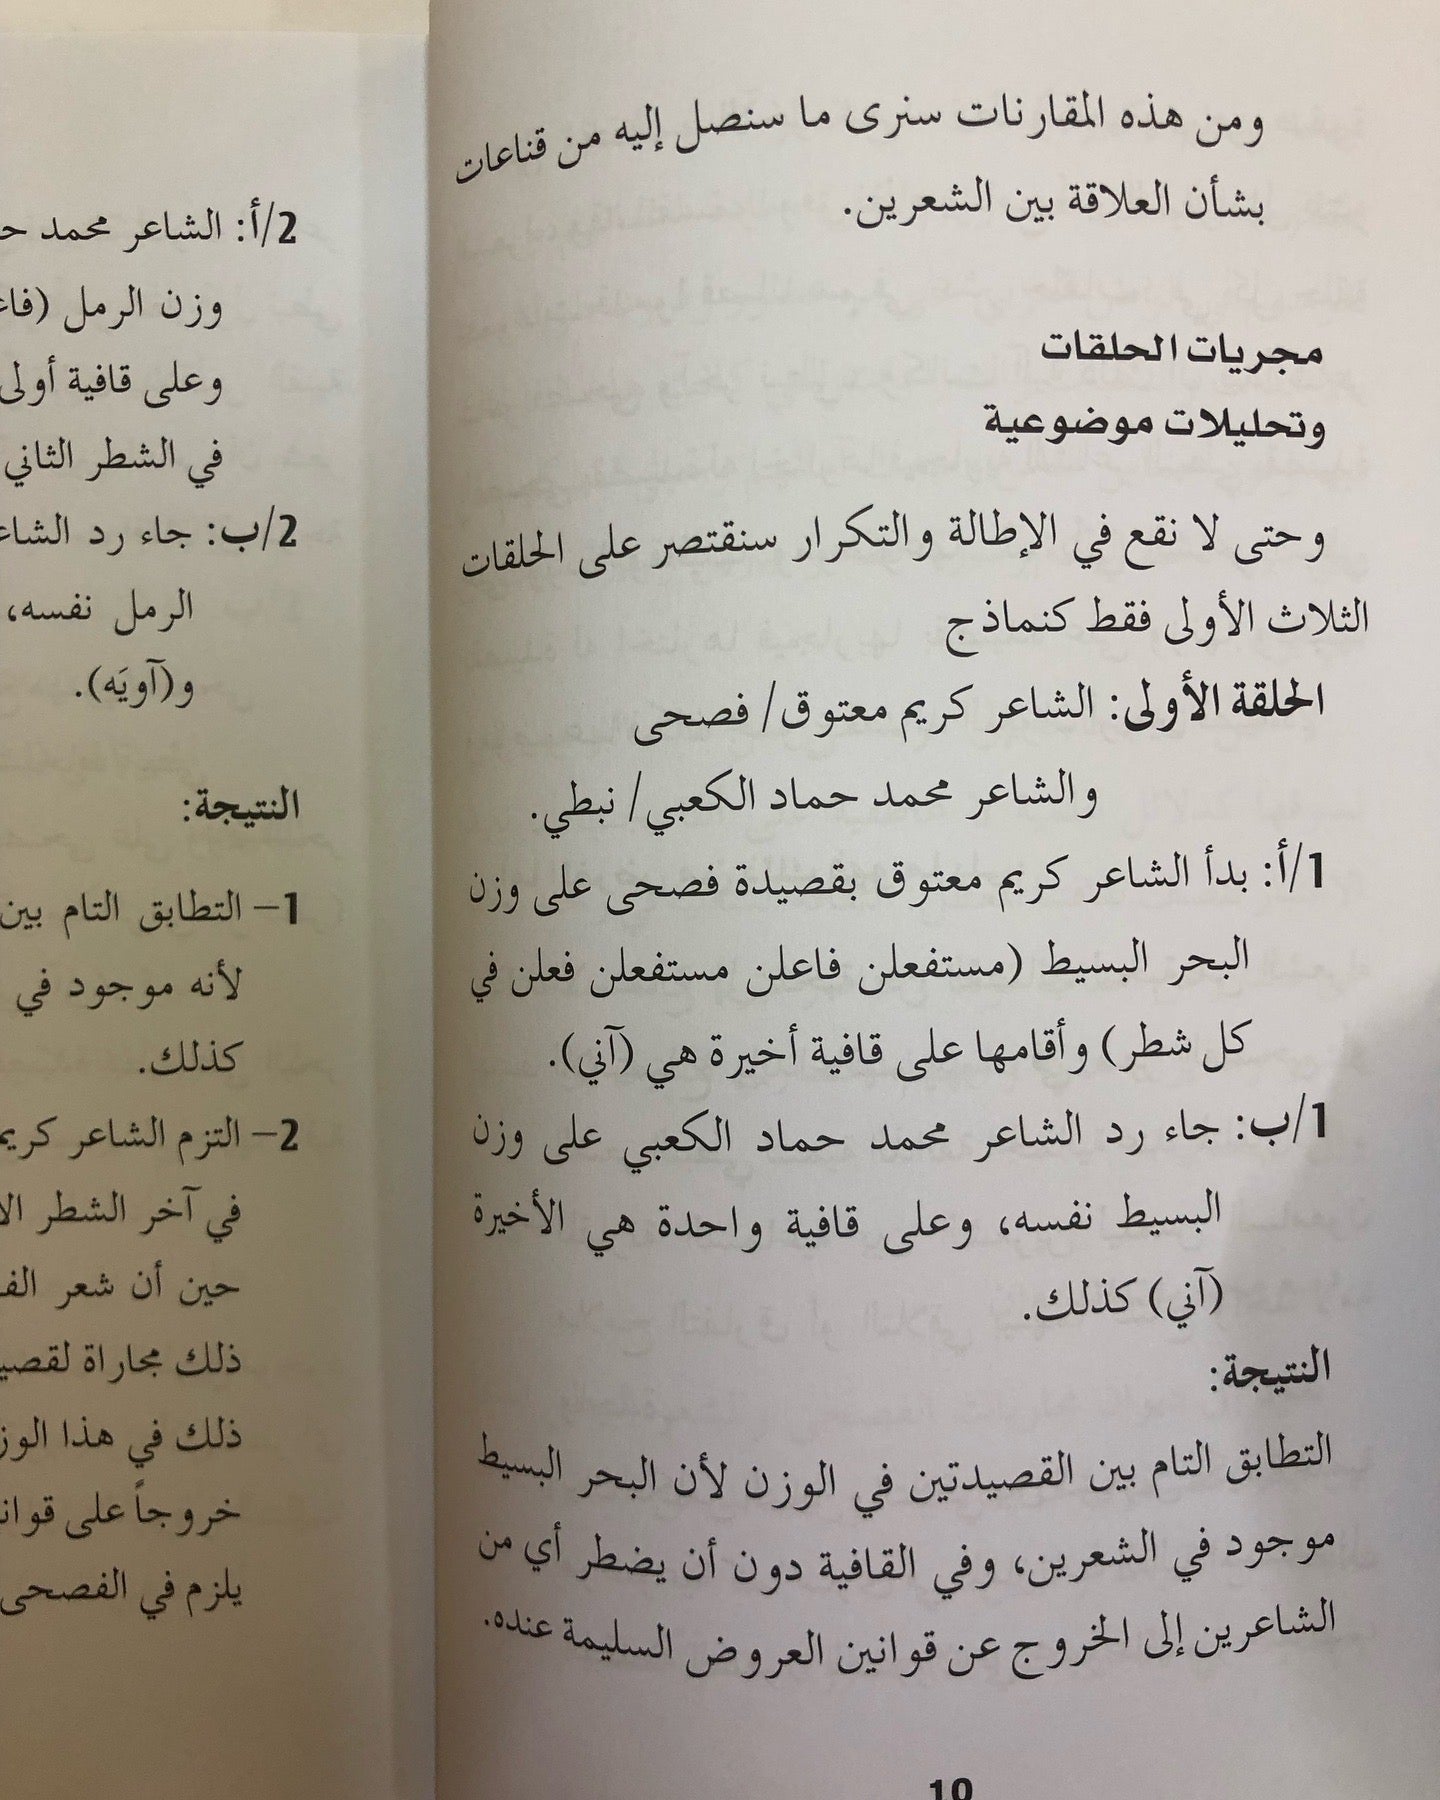 ومن هذه المقارنات سنرى ما سنصل إليه من قناعات
بشأن العلاقة بين الشعرين.
مجريات الحلقات
وتحليلات موضوعية
وحتى لا نقع في الإطالة والتكرار سنقتصر على الحلقات
الثلاث الأولى فقط كنماذج
الحلقة الأولى: الشاعر كريم معتوق/ فصحى
والشاعر محمد حماد الكعبي/ نبطي.
1/أ: بدأ الشاعر كريم معتوق بقصيدة فصحى على وزن
البحر البسيط (مستفعلن فاعلن مستفعلن فعلن في
كل شطر) وأقامها على قافية أخيرة هي (آني).
1/ب: جاء رد الشاعر محمد حماد الكعبي على وزن
البسيط نفسه، وعلى قافية واحدة هي الأخيرة
(آني) كذلك.
النتيجة:
التطابق التام بين القصيدتين في الوزن لأن البحر البسيط
موجود في الشعرين، وفي القافية دون أن يضطر أي من
الشاعرين إلى الخروج عن قوانين العروض السليمة عنده.
10
2/أ: الشاعر محمد
وزن الرمل
وعلى قافية أولى
في الشطر الثاني
2/ب: جاء رد
الرمل نفسه،
و(آويَه).
النتيجة:
1– التطابق التام بين
لأنه موجود في
كذلك.
2– التزم الشاعر
في آخر الشطر
حين أن شعر
ذلك مجاراة
ذلك في هذا
خروجاً على
يلزم في الفصحى